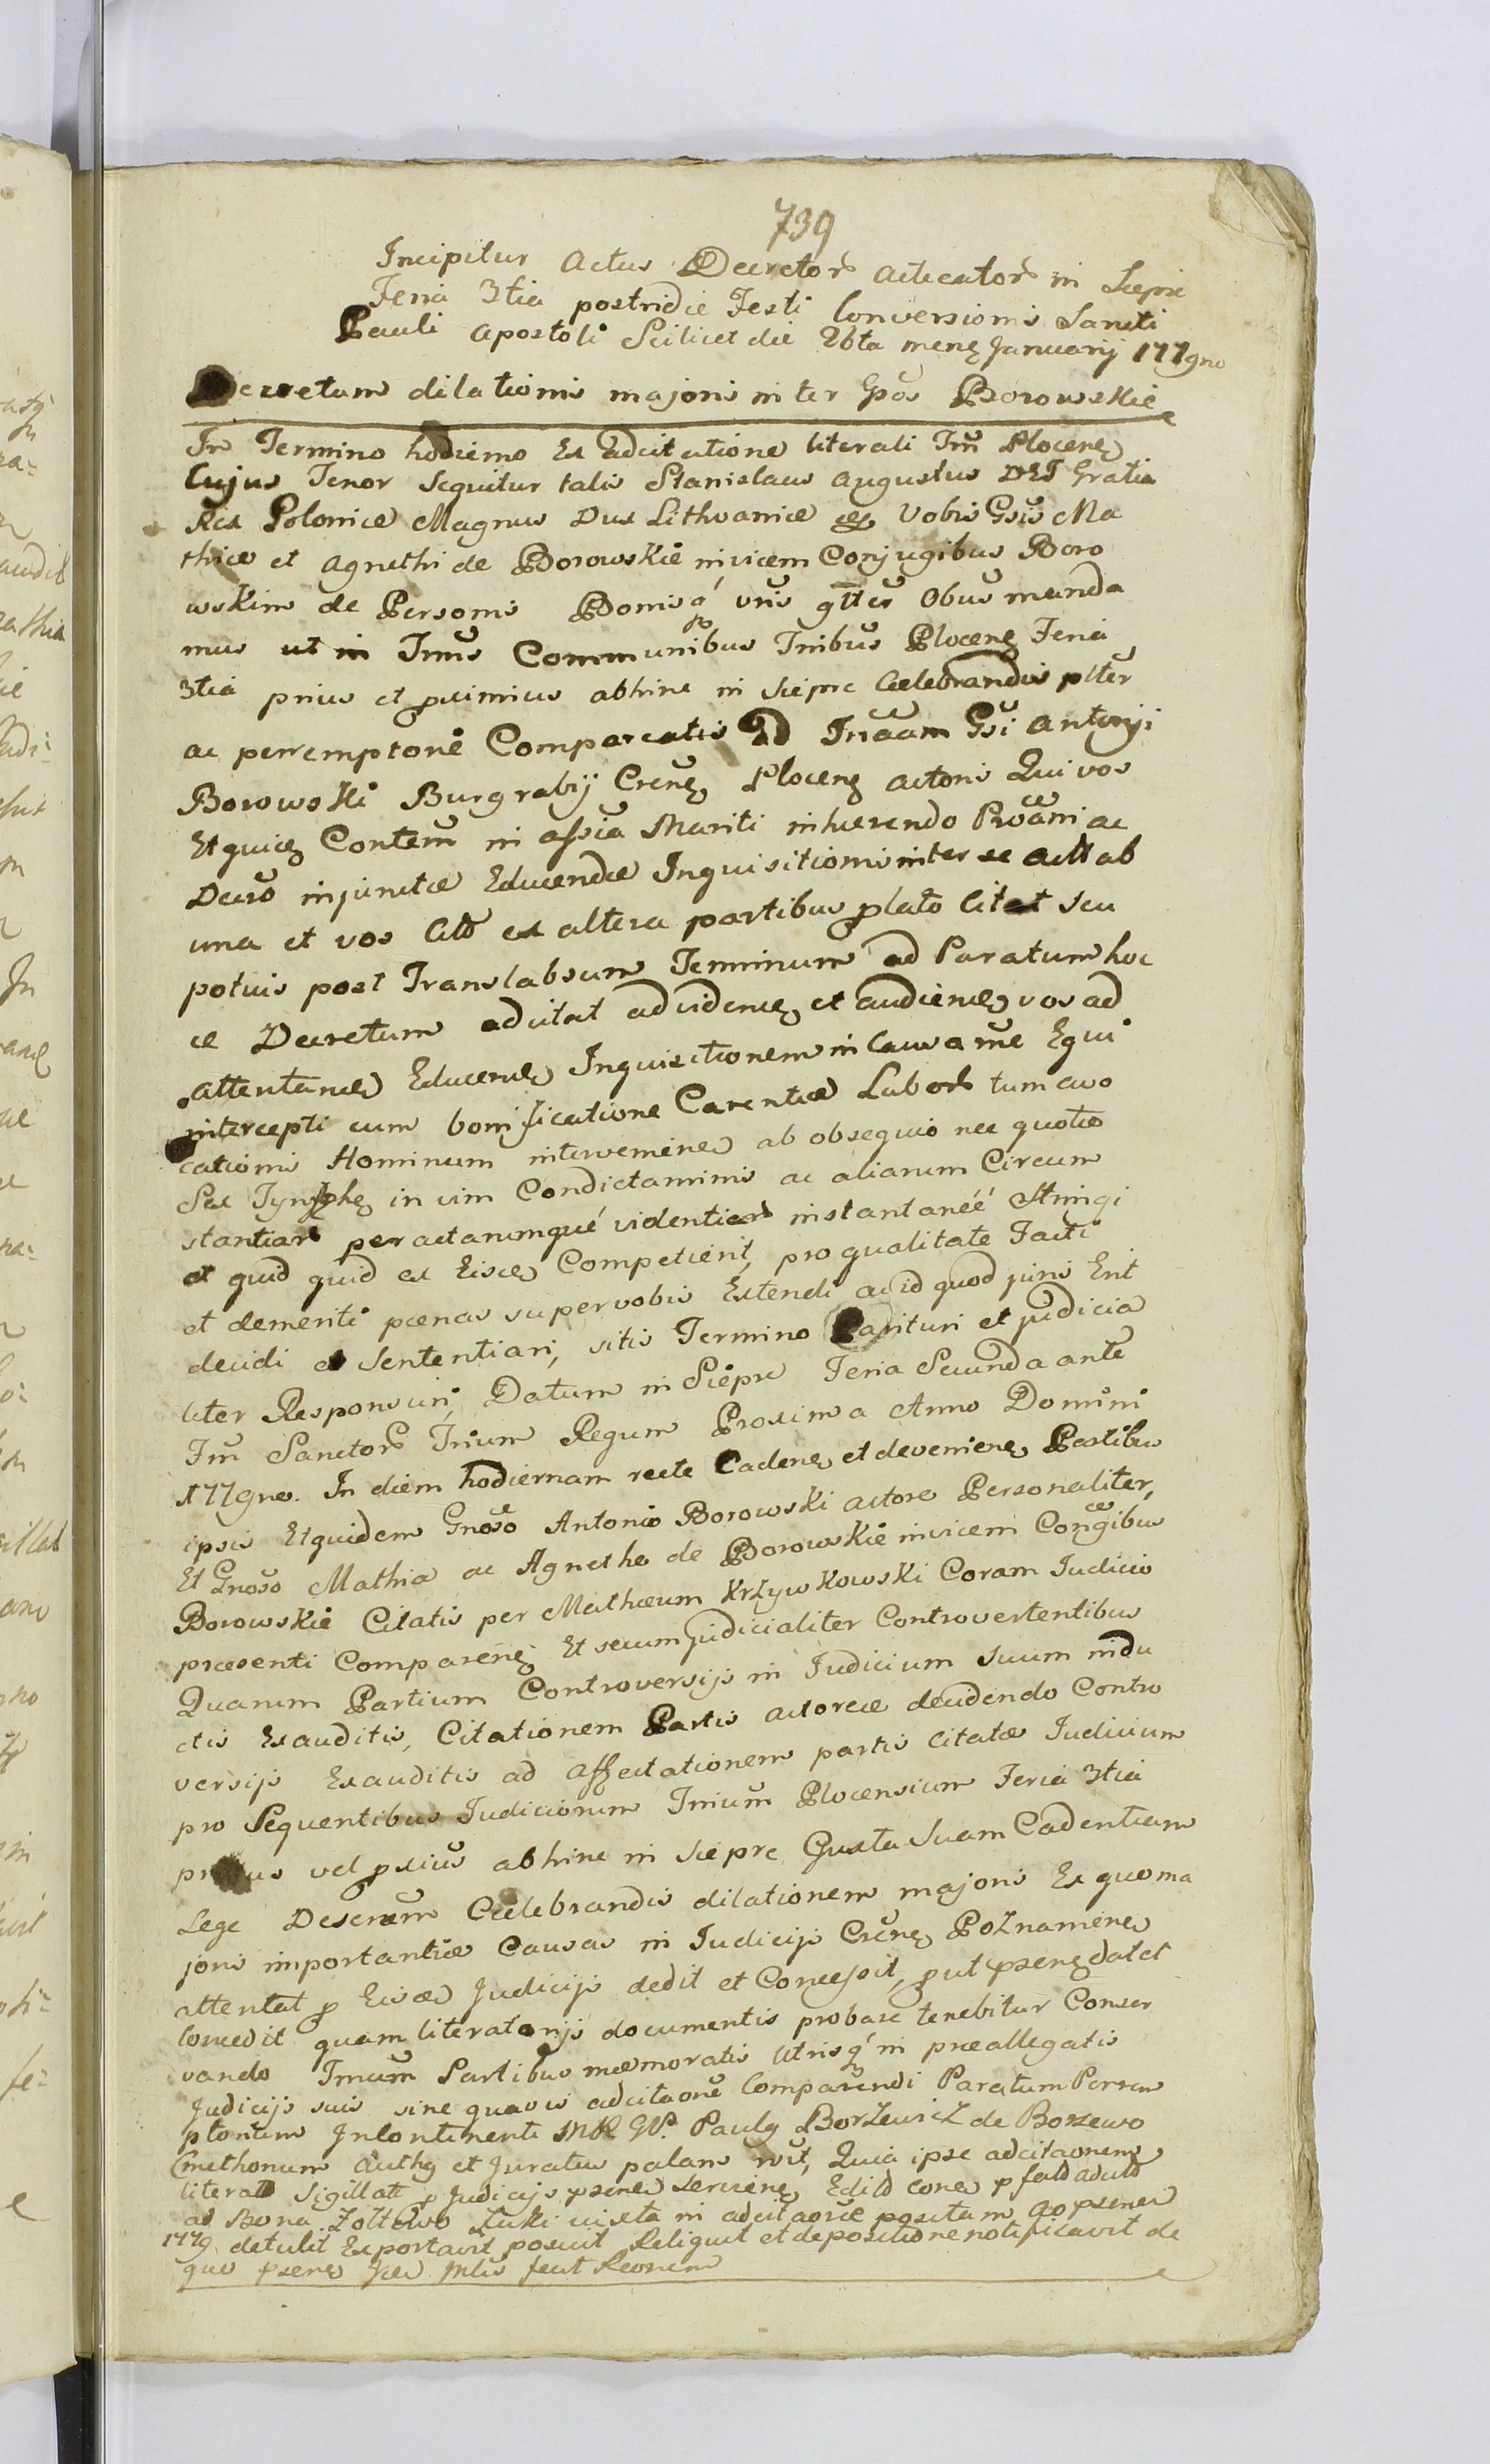 739
Incipitur Actus Decretor acticator in Siepic
Feria 3tia postridie Festi Conversionis Sancti
Pauli Apostoli Scilicet die 26ta menę Januarij 1779no
Decretum dilationis majoris inter Gsos Borowskie
In Termino hodierno Ex adcitatione literali Trrm Plocenę
Cujus Tenor Sequitur talis Stanislaus Augustus DEI Gratia
Rex Poloniæ Magnus Dux Lithvaniæ Vobis Gsis Ma
thiæ et Agnethi de Borowskie invicem Conjugibus Boro
wskim de Personis Bonisq́ vris gtter Obus manda
mus ut in Trrus Communibus Trribus Plocenę Feria
3tia prius et proximius abhinc in Siepre Celebrandis ptter
ac perremptorie Compareatis Ad Insãam Gsi Antonji
Borowski Burgrabij Crcnę Plocenę actoris Qui vos
Et quicę Contem in assia Mariti inhærendo Pvoãni ac
Decro injunctæ Educendæ Inquisitionis inter se act ab
una et vos Citt ex altera partibus plato Citat seu
potius post Translabsum Terminum ad Paratum hoc
ce Decretum adcitat ad videnę et audienę vos ad
attentanę Educenę Inquisitionem in Causa rne Equi
intercepti cum bonificatione Carentiæ Labor tum avo
cationis Hominum intervenienę ab obsequio nec quoties
Sex Tynfhę in vim Condictaminis ac aliarum Circum
stantiar peractarumqué videntiar instantanéé Stringi
et quid quid ex Eisce Competierit, pro qualitate Facti
et demeriti pœnas super vobis Extendi ac id quod juris Erit
decidi et Sententiari, sitis Termino Parituri et judicia
liter Responsuri, Datum in Siepre Feria Secunda ante
Fm Sanctor Trium Regum Proxima Anno Domini
1779no. In diem hodiernam recte Cadenę et devenienę Partibus
ipsis Et quidem Gnoso Antonio Borowski actore Personaliter,
Et Gnoso Mathia ac Agnethe de Borowskie invicem Congibus
Borowskie Citatis per Mathæum Krzywkowski Coram Iudicio
præsenti Comparenę Et secum judicialiter Controvertentibus
Quarum Partium Controversijs in Iudicium Suum indu
ctis Exauditis, Citationem Partis actoreæ decidendo Contro
versijs Exauditis ad affectationem partis Citatæ Iudicium
pro Sequentibus Iudiciorum Trrium Plocensium Feria 3tia
prius vel pxius abhinc in Siepre Juxta Suam Cadentiam
Lege Descram Celebrandis dilationem majoris Ex quo ma
joris importantiæ Causas in Iudicijs Crcnę Poznanienę
attentat p Eisdę Judicijs dedit et Concessit, put psenę dat et
Concedit quam literatorijs documentis probare tenebitur Conser
vando Trnum Partibus mæmoratis Utrisq́ in præallegatis
Judicijs suis sine quavis adcitaone Comparendi Paratum Perem
ptorium Incontinenti MR GV. Paulg Borzewicz de Borzewo
Cmethonum Authg et Juratus palam rvit, Quia ipse adcitaonem
literatt Sigillatt p Judicijs psenę servienę
ad Bona Zołtowo Łuki juxta in adcitaone positam ao psenti
1779 detulit Exportavit posuit Reliquit et depositione notificavit de
quo psenę fecit Reonem